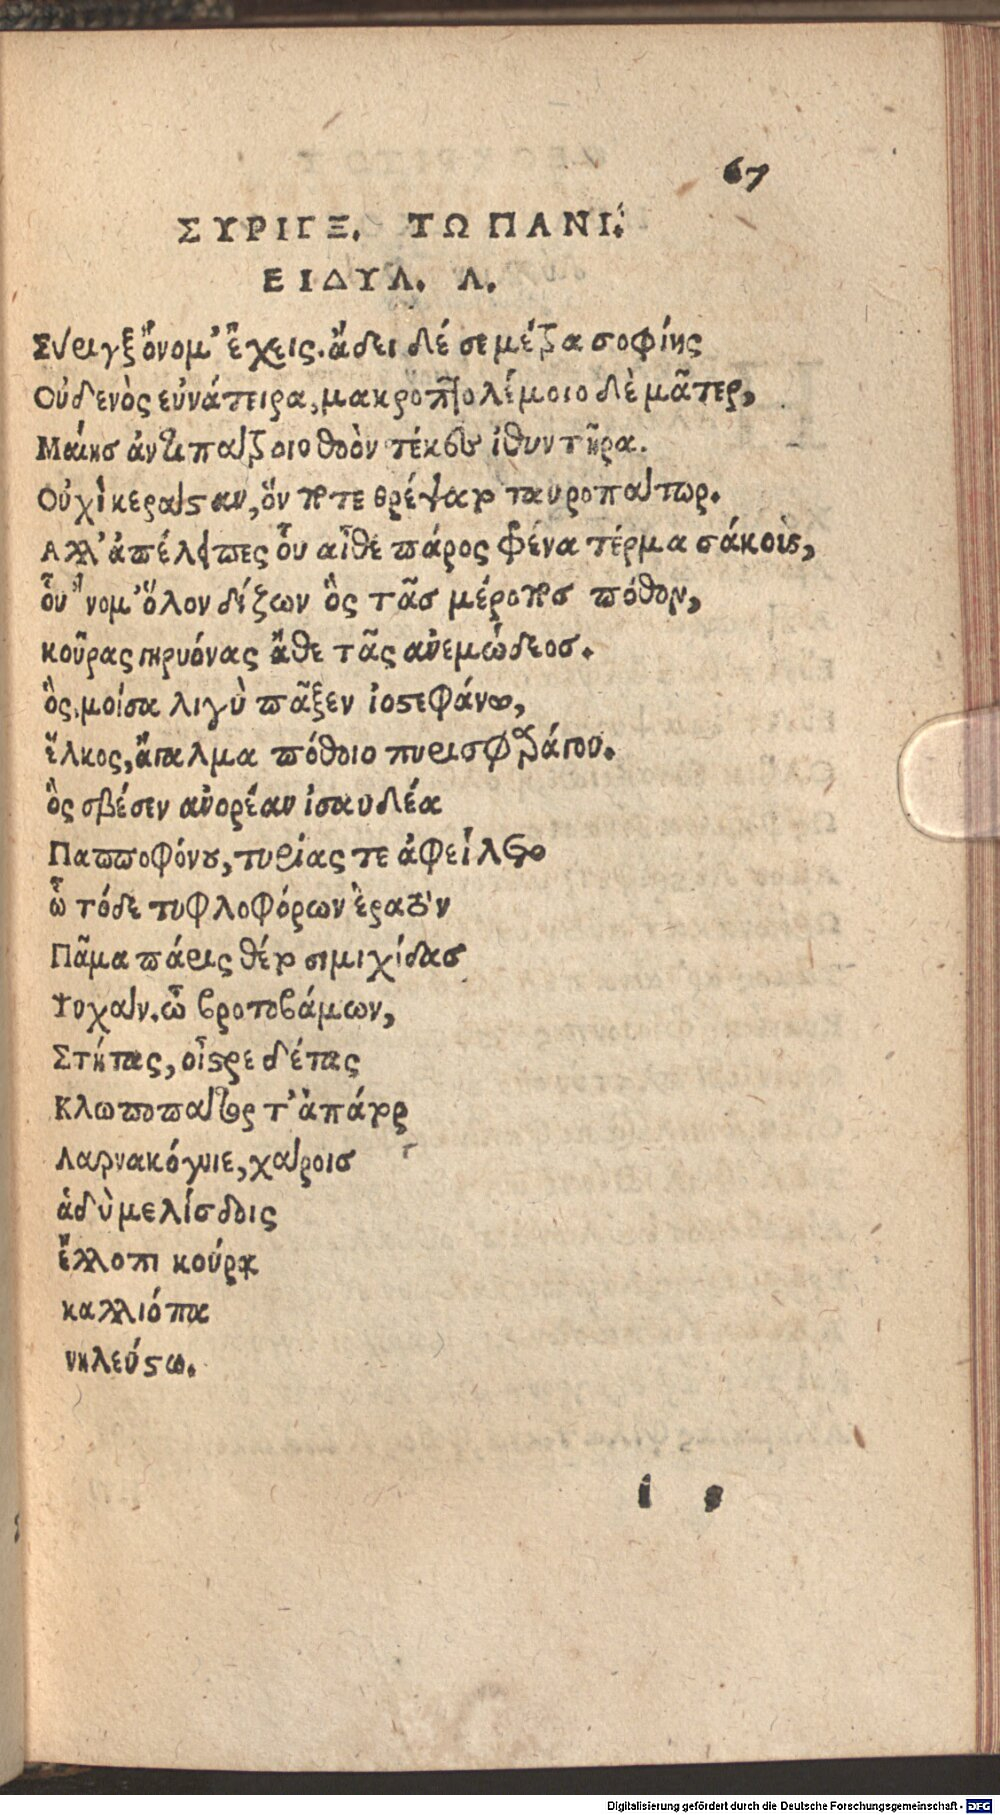 67
ΣΥΡΙΓΞ. ΤΩ ΠΑΝΙ.
ΕΙΔΥΛ. Λ.
Σύριγξ ὄνομ' ἔχεις. ἄδει δέ σε μέζα σοφίης
Οὐδενὸς εὐνάτειρα, μακροπολέμοιο δὲ μᾶτερ,
Μαίης ἀντιπαίζοιο θοὸν τέκεν ἰθυντῆρα.
Οὐχὶ κεραίσταν, ὅν ποτε θρέψαρ ταυροπαίτωρ.
Αλλ' ἀπέλιπες οὗ αἶθε πάρος φένα τέρμα σάκοις,
οὗ νομ' ὅλον δίζων ὃς τᾶς μέροπος πόθον,
κοῦρας γηρυόνας ἄθε τᾶς ἀνεμώδεος.
ὃς μοίσα λιγὺ πᾶξεν ἰοστεφάνω,
ἕλκος, ἄγαλμα πόθοιο πυρισφαράγου.
ὃς σβέσεν ἀνορέαν ἰσαυδέα
Παπποφόνου, τυρίας τε ἀφείλετο
ὦ τόδε τυφλοφόρων ἐρατὸν
Πᾶμα πάρις θέρ σιμιχίδας
Ψυχαίν. ὦ βροτοβάμων,
Στήτας, οἶστρε δέτας
Κλωποπαίτωρ τ' ἀπάτωρ
Λαρνακόγυιε, χαίροις
ἁδὺ μελίσδοις
ἔλλοπι κούρᾳ
καλλιόπα
νηλεύστω.
i
Digitalisierung gefördert durch die Deutsche Forschungsgemeinschaft - DFG